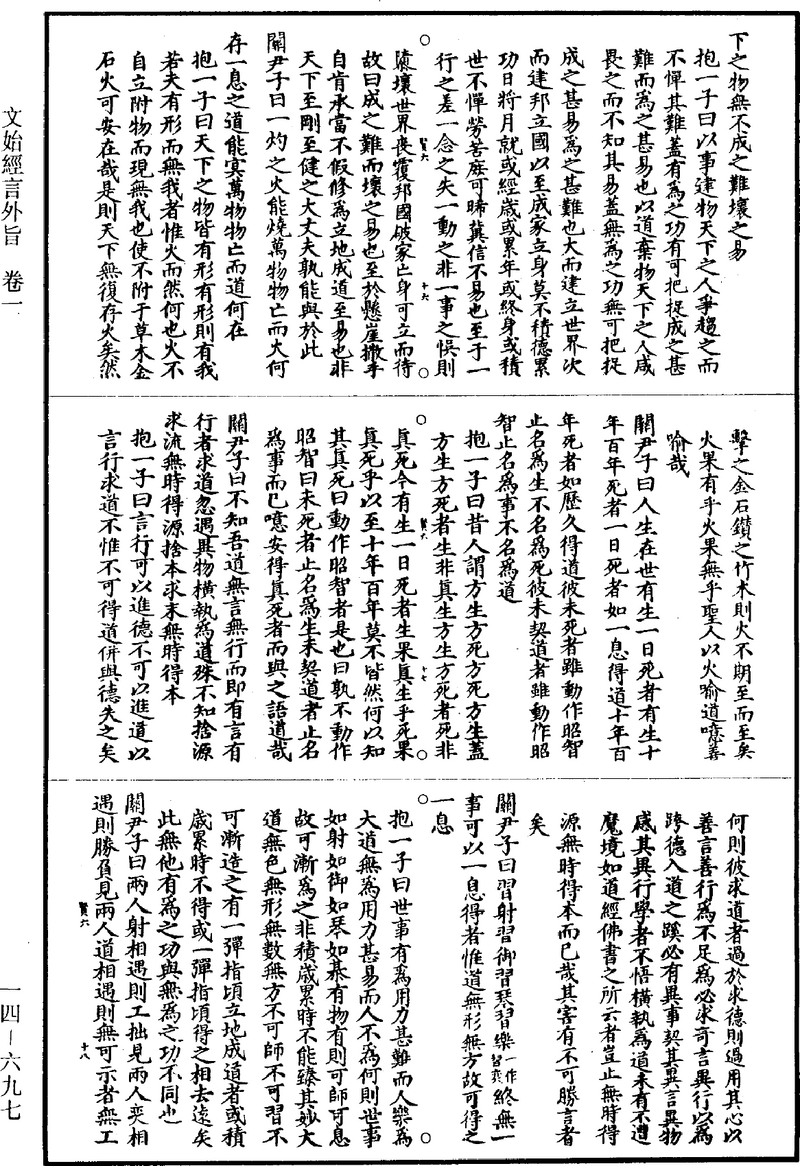 下之物無不成之難壞之易
抱一子曰以事建物天下之人爭趨之而
不憚其難蓋有為之功有可把捉成之甚
難而為之甚易也以道棄物天下之人咸
畏之而不知其易蓋無為之功無可把捉
成之甚易為之甚難也大而建立世界次
而建邦立國以至成家立身莫不積德累
功日將月就或經歲或累年或終身或積
世不憚勞苦庶可晞冀信不易也至于一
行之差一念之失一動之非一事之悞則
賢六
十六
隳壞世界喪覆邦國破家亡身可立而待
故曰成之難而壞之易也至於懸崖撒手
自肯承當不假修為立地成道至易也非
天下至剛至健之大丈夫孰能與於此
關尹子曰一灼之火能燒萬物物亡而火何
存一息之道能冥萬物物亡而道何在
抱一子曰天下之物皆有形有形則有我
若夫有形而無我者惟火而然何也火不
自立附物而現無我也使不附于草木金
石火可安在哉是則天下無復存火矣然
擊之金石鑽之竹木則火不期至而至矣
火果有乎火果無乎聖人以火喻道噫善
喻哉
關尹子曰人生在世有生一日死者有生十
年百年死者一日死者如一息得道十年百
年死者如歷久得道彼未死者雖動作昭智
止名為生不名為死彼未契道者雖動作昭
智止名為事不名為道
抱一子曰昔人謂方生方死方死方生蓋
方生方死者生非真生方生方死者死非
賢六
十七
真死今有生一日死者生果真生乎死果
真死乎以至十年百年莫不皆然何以知
其真死曰動作昭智者是也曰孰不動作
昭智曰未死者止名為生未契道者止名
為事而已噫安得真死者而與之語道哉
關尹子曰不知吾道無言無行而即有言有
行者求道忽遇異物橫執為道殊不知捨源
求流無時得源捨本求末無時得本
抱一子曰言行可以進德不可以進道以
言行求道不惟不可得道併與德失之矣
何則彼求道者過於求德則過用其心以
善言善行為不足為必求奇言異行以為
跨德入道之蹊必有異事契其異言異物
感其異行學者不悟橫執為道未有不遭
魔境如道經佛書之所云者豈止無時得
源無時得本而已哉其害有不可勝言者
矣
關尹子曰習射習御習琴習樂一作習奕終無一
事可以一息得者惟道無形無方故可得之
一息
抱一子曰世事有為用力甚難而人樂為
大道無為用力甚易而人不為何則世事
如射如御如琴如棊有物有則可師可息
故可漸為之非積歲累時不能臻其妙大
道無色無形無數無方不可師不可習不
可漸造之有一彈指頃立地成道者或積
歲累時不得或一彈指頃得之相去遠矣
此無他有為之功與無為之功不同也
關尹子曰兩人射相遇則工拙見兩人奕相
遇則勝負見兩人道相遇則無可示者無工
賢六
十八
文始經言外旨 卷一
一四－六九七